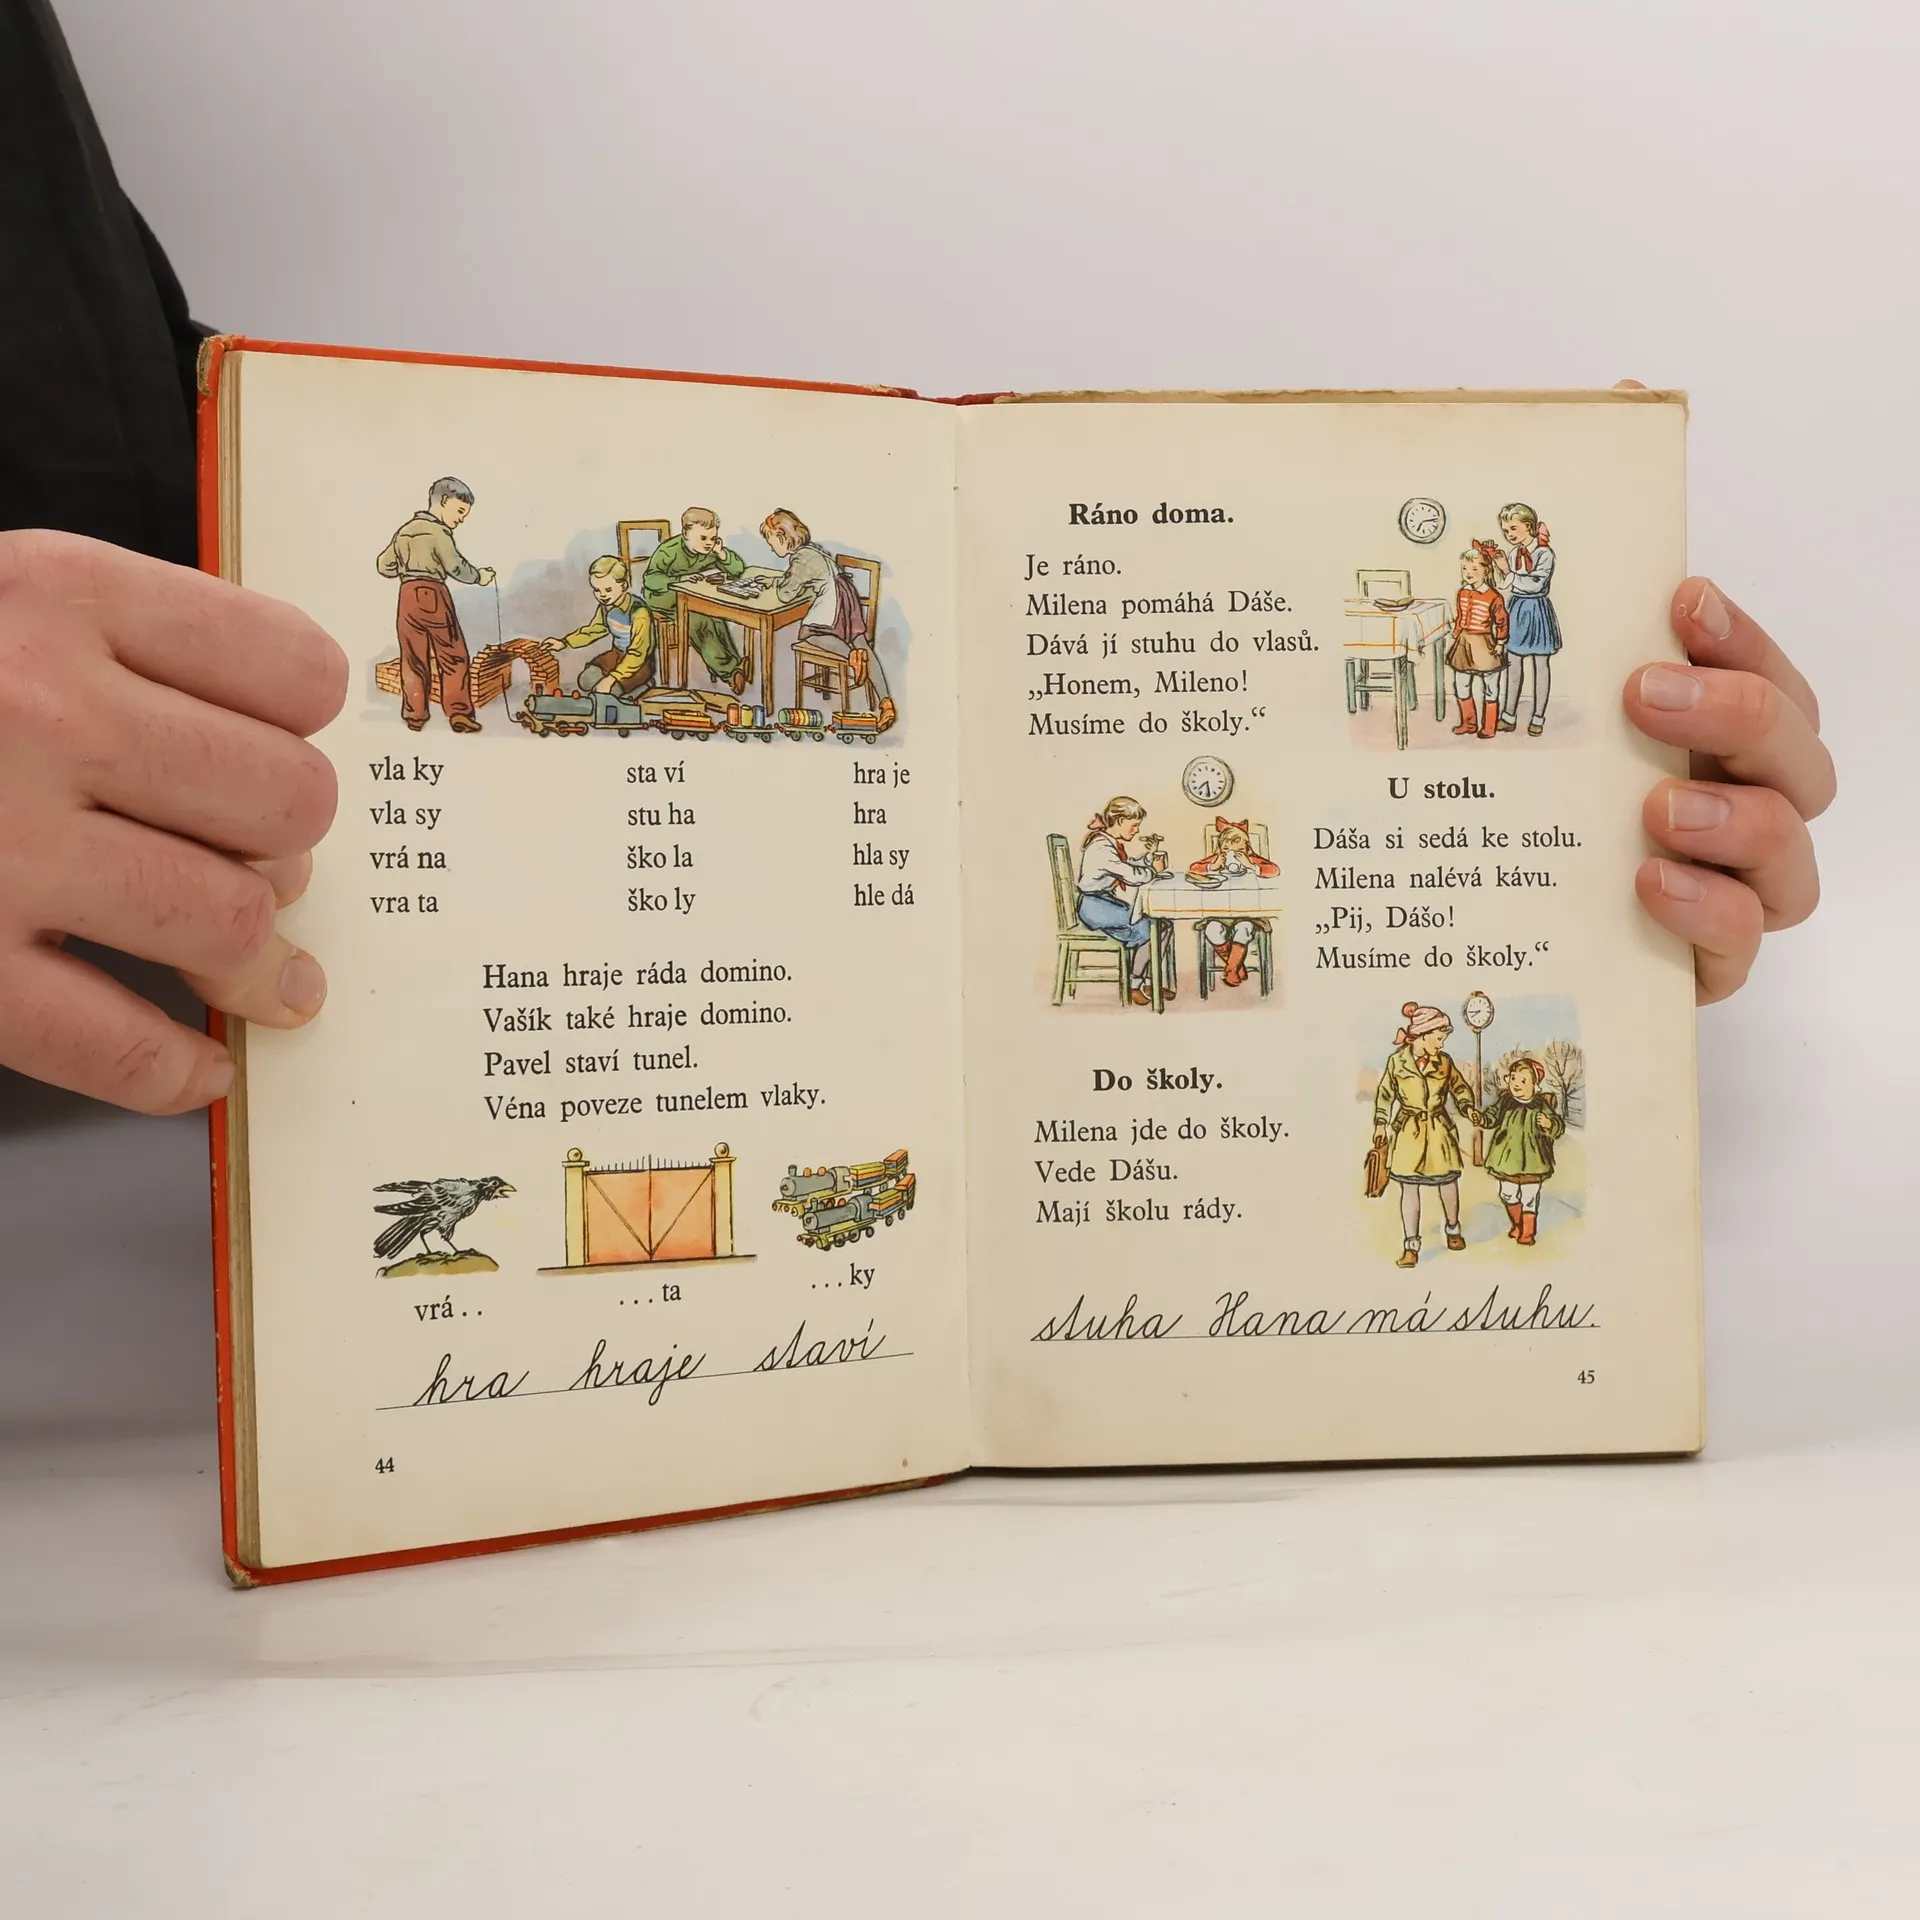 vla ky sta ví hra je
vla sy stu ha hra
vrá na ško la hla sy
vra ta ško ly hle dá
Hana hraje ráda domino.
Vašík také hraje domino.
Pavel staví tunel.
Véna poveze tunelem vlaky.
vrá.. ...ta ...ky
hra hraje staví
44
Ráno doma.
Je ráno.
Milena pomáhá Dáše.
Dává jí stuhu do vlasů.
„Honem, Mileno!
Musíme do školy.“
U stolu.
Dáša si sedá ke stolu.
Milena nalévá kávu.
„Pij, Dášo!
Musíme do školy.“
Do školy.
Milena jde do školy.
Vede Dášu.
Mají školu rády.
stuha Hana má stuhu.
45